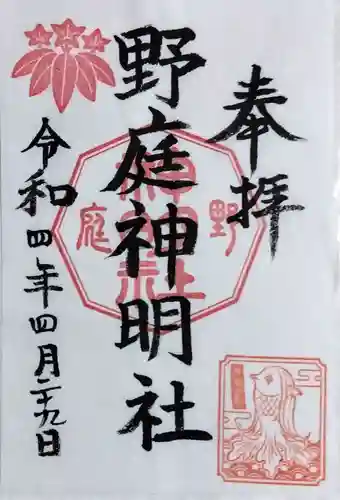 奉拝
野庭神明社
令和四年四月二十九日
野庭
神明社